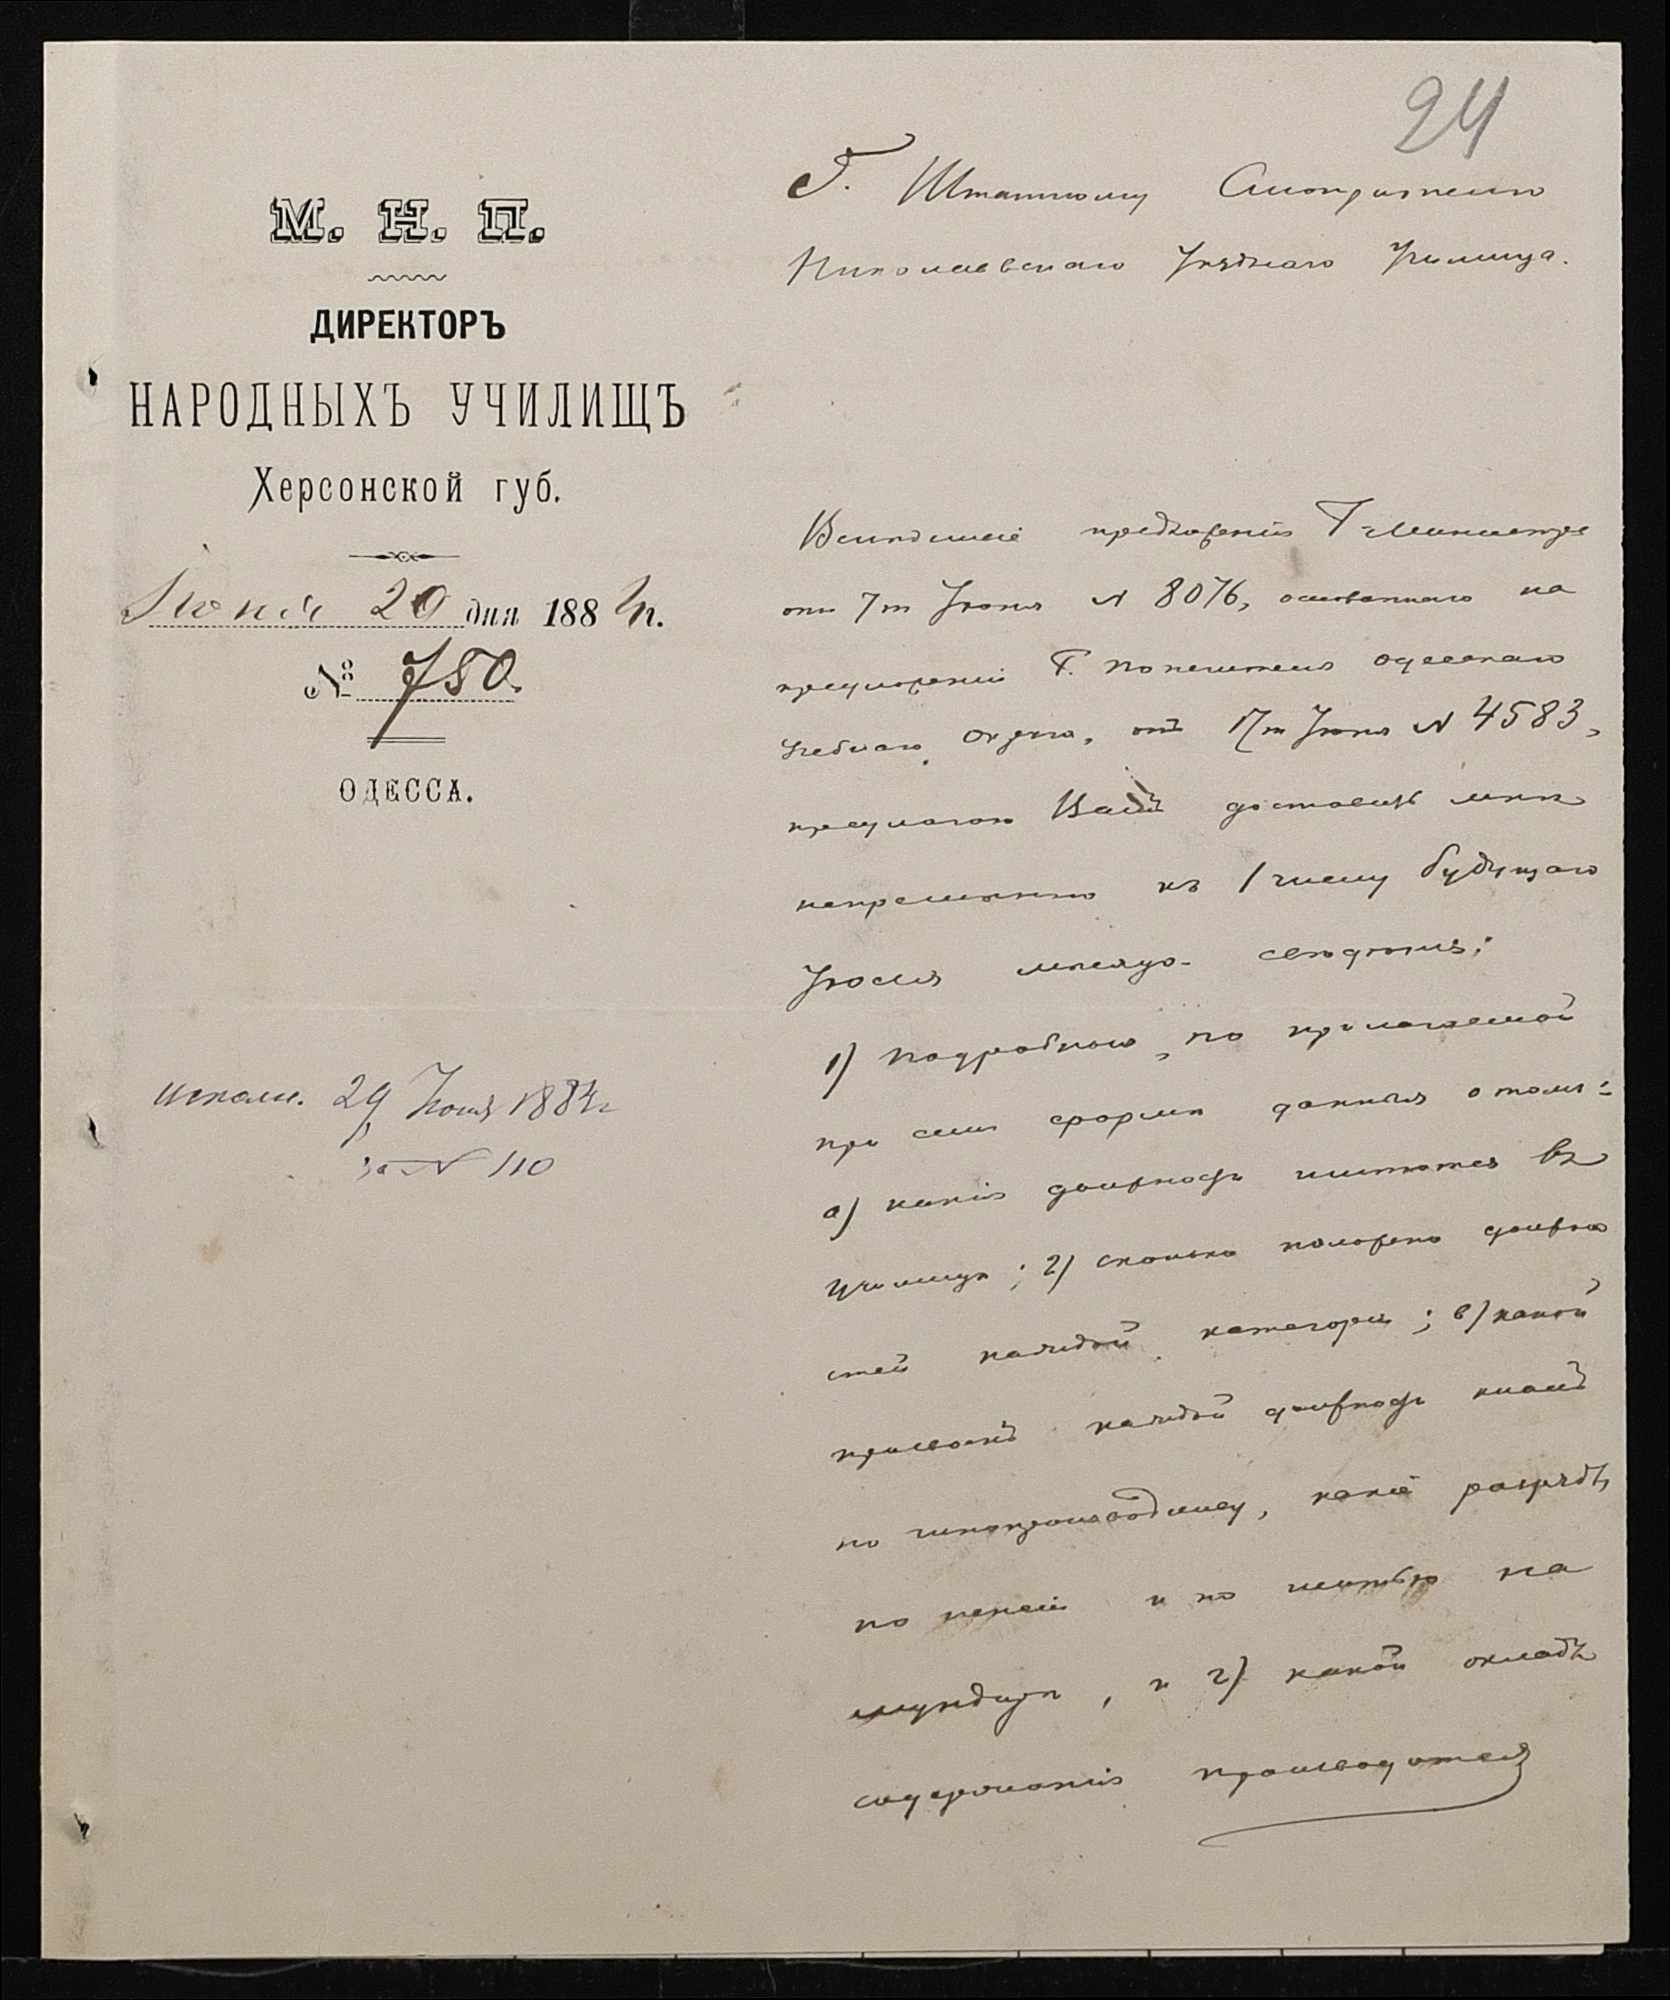 24
М. Н. П.
ДИРЕКТОРЪ
НАРОДНЫХЪ УЧИЛИЩЪ
Херсонской губ.
Іюня 20 дня 1884 г.
№ 780.
ОДЕССА.
исполн. 29 Іюня 1884 г
за N 110
Г. Штатному Смотрителю
Николаевскаго Уѣзднаго Училища.
Вслѣдствіе предложенія Г Министра
отъ 7го Іюня N 8076, основаннаго на
предложеніи Г. Попечителя Одесскаго
Учебнаго Округа, отъ 17го Іюня N 4583,
предлагаю Вамъ доставить мнѣ
непремѣнно къ 1 числу будущаго
Іюля мѣсяца свѣдѣнія:
1) Подробныя, по прилагаемой
при семъ формѣ данныя о томъ:
а) какія должности имѣются въ
училищѣ; 2) сколько положено должно
стей каждой категоріи; в) какой
присвоенъ каждой должности классъ
по чинопроизводству, какіе разряды
по пенсіи и по шитью на
мундирѣ, и г) какой окладъ
содержанія производится